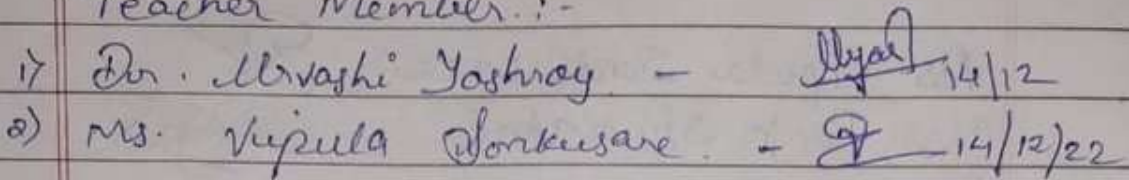 Teacher Member :-
1) Dr. Urvashi Yashroy - 14/12
2) Ms. Vipula Sonkusare. - 14/12/22